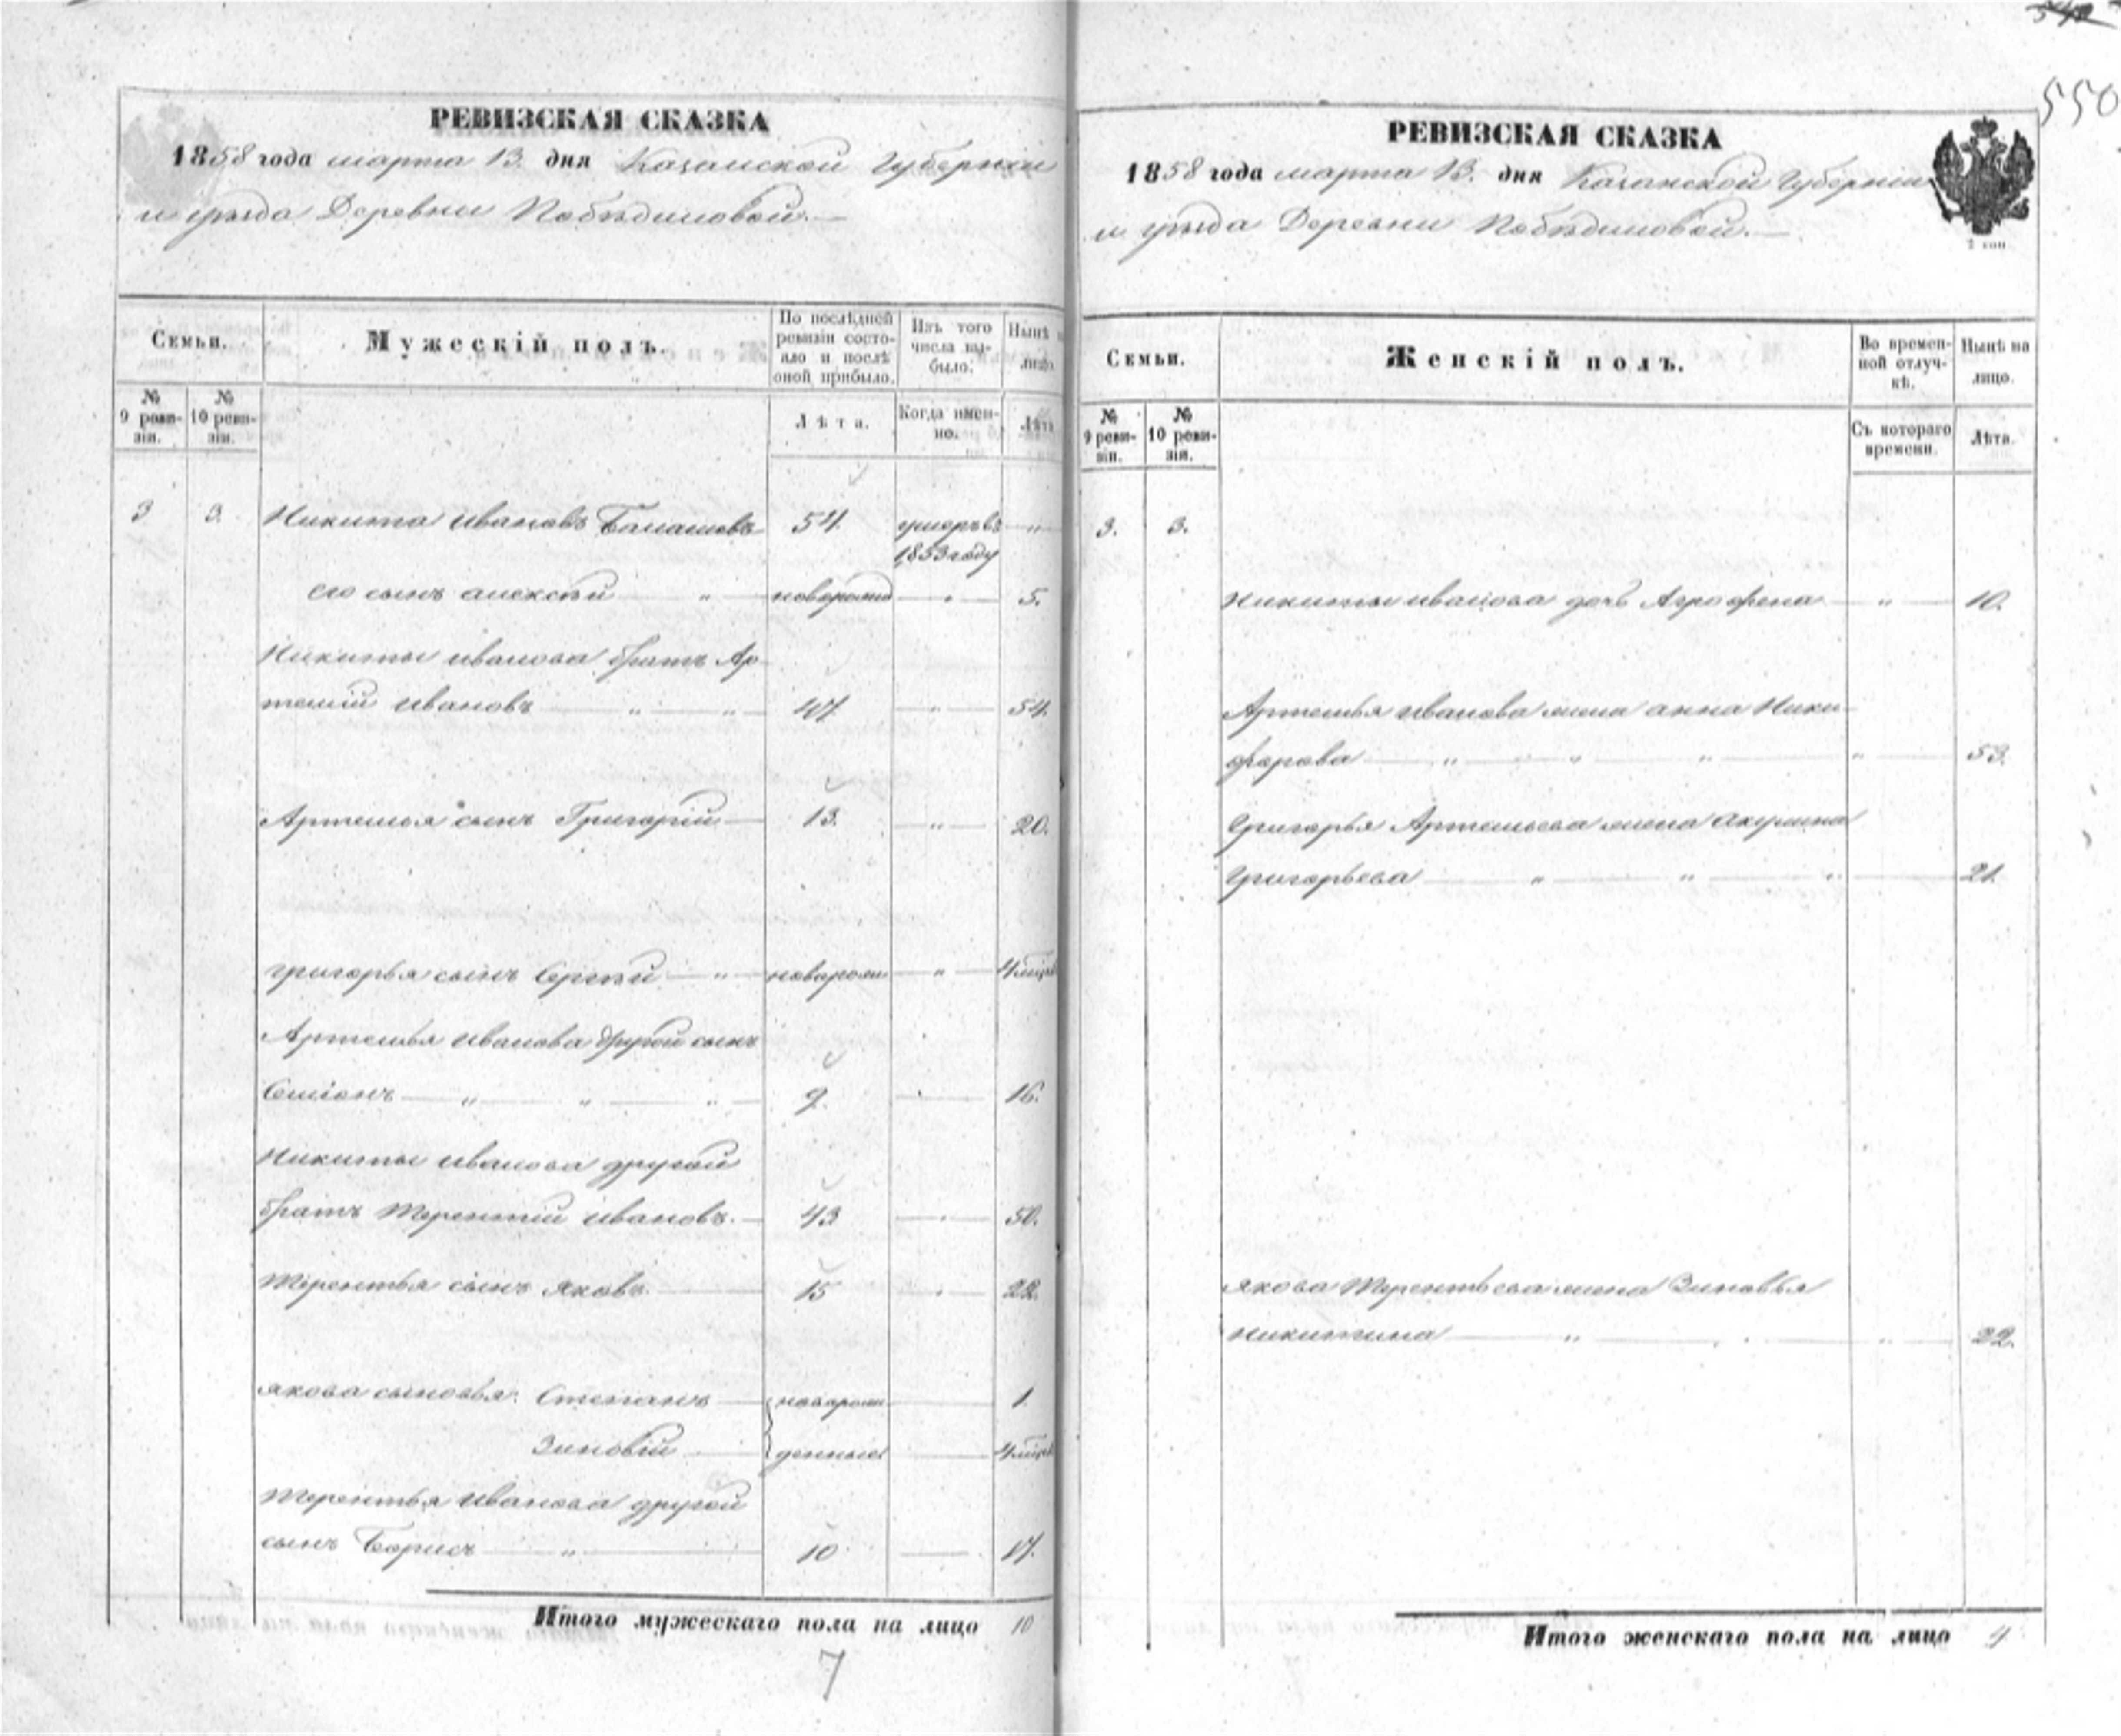 550
РЕВИЗСКАЯ СКАЗКА
1858 года марта 13. дня Казанской Губерніи
и уѣзда Деревни Побѣдиловой.
Семьи.
Мужескій полъ.
По послѣдней ревизіи состояло и послѣ оной прибыло.
Изъ того числа выбыло.
Нынѣ на лицо.
№ 9 ревизіи.
№ 10 ревизіи.
Лѣта.
Когда именно.
Лѣта
3 3. Никита Ивановъ 54. умеръ въ "
1853 году
его сынъ Алексѣй " новорожд " 5.
Никиты Иванова братъ Ар
темій Ивановъ " " 47. " 54.
Артемья сынъ Григорій 13. " 20.
Григорья сынъ Сергѣй " новорожд " 4 мѣсяц
Артемья Иванова другой сынъ
Семіонъ " " " 9. 16.
Никиты Иванова другой
братъ Терентій Ивановъ. 43 50.
Терентья сынъ Яковъ. 15 22.
Якова сыновья: Степанъ новорож 1.
Зиновій денные 4 мѣсяц
Терентья Иванова другой
сынъ Борисъ " 10 17.
Итого мужескаго пола на лицо 10
7
РЕВИЗСКАЯ СКАЗКА
1858 года марта 13. дня Казанской Губерніи
и уѣзда Деревни Побѣдиловой.
2 коп
Семьи.
Женскій полъ.
Во временной отлучкѣ.
Нынѣ на лицо.
№ 9 ревизіи.
№ 10 ревизіи.
Съ котораго времени.
Лѣта.
3. 3.
Никиты Иванова дочь Агрофена " 10.
Артемья Иванова жена Анна Ники
форова " " " " 53.
Григорья Артемьева жена Акулина
Григорьева " " " 21.
Якова Терентьева жена Зиновья
Никитина " " 22.
Итого женскаго пола на лицо 4